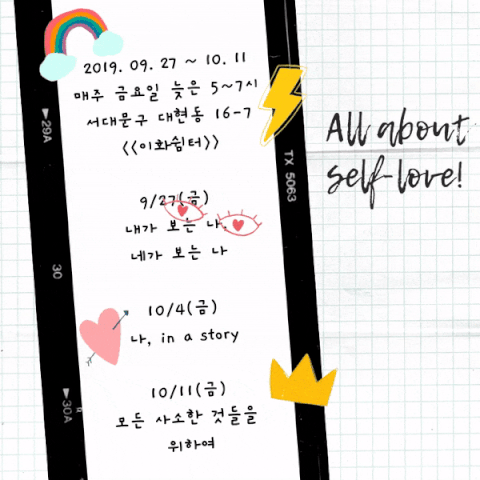 2019. 09. 27 ~ 10. 11
매주 금요일 늦은 5~7시
서대문구 대현동 16-7
<<이화쉼터>>
9/27(금)
내가 보는 나,
네가 보는 나
10/4(금)
나, in a story
10/11(금)
모든 사소한 것들을
위하여
All about
self-love!
▶29A
TX 5063
30
▶30A